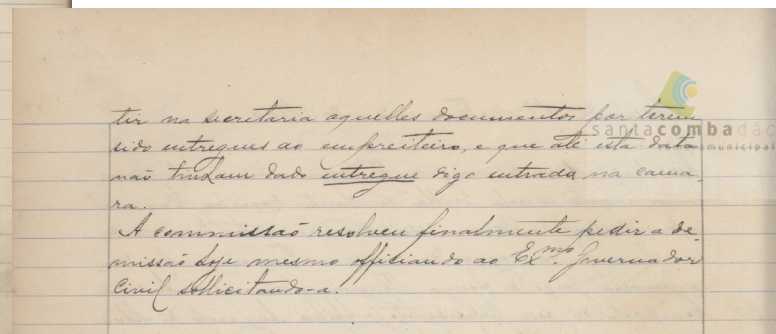 tir na secretaria aquelles documentos por terem
sido entregues ao empreiteiro, e que até esta data
não tinham dado entregue digo entrada na cama-
ra.
A commissão resolveu finalmente pedir a de-
missão hoje mesmo officiando ao Exmo. Governador
Civil sollicitando-a.
santacombadão
municipal